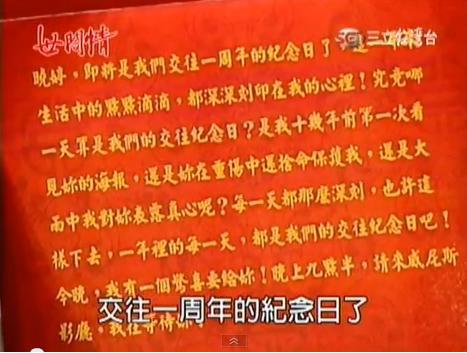 世間情
三立台灣台
晚婷，即將是我們交往一周年的紀念日了
生活中的點點滴滴，都深深刻印在我的心裡！究竟哪
一天算是我們的交往紀念日？是我十幾年前第一次看
見妳的海報，還是妳在重傷中還捨命保護我，還是大
雨中我對妳表露真心呢？每一天都那麼深刻，也許這
樣下去，一年裡的每一天，都是我們的交往紀念日吧！
今晚，我有一個驚喜要給妳！晚上九點半，請來威尼斯
影廳，我在等待妳
交往一周年的紀念日了